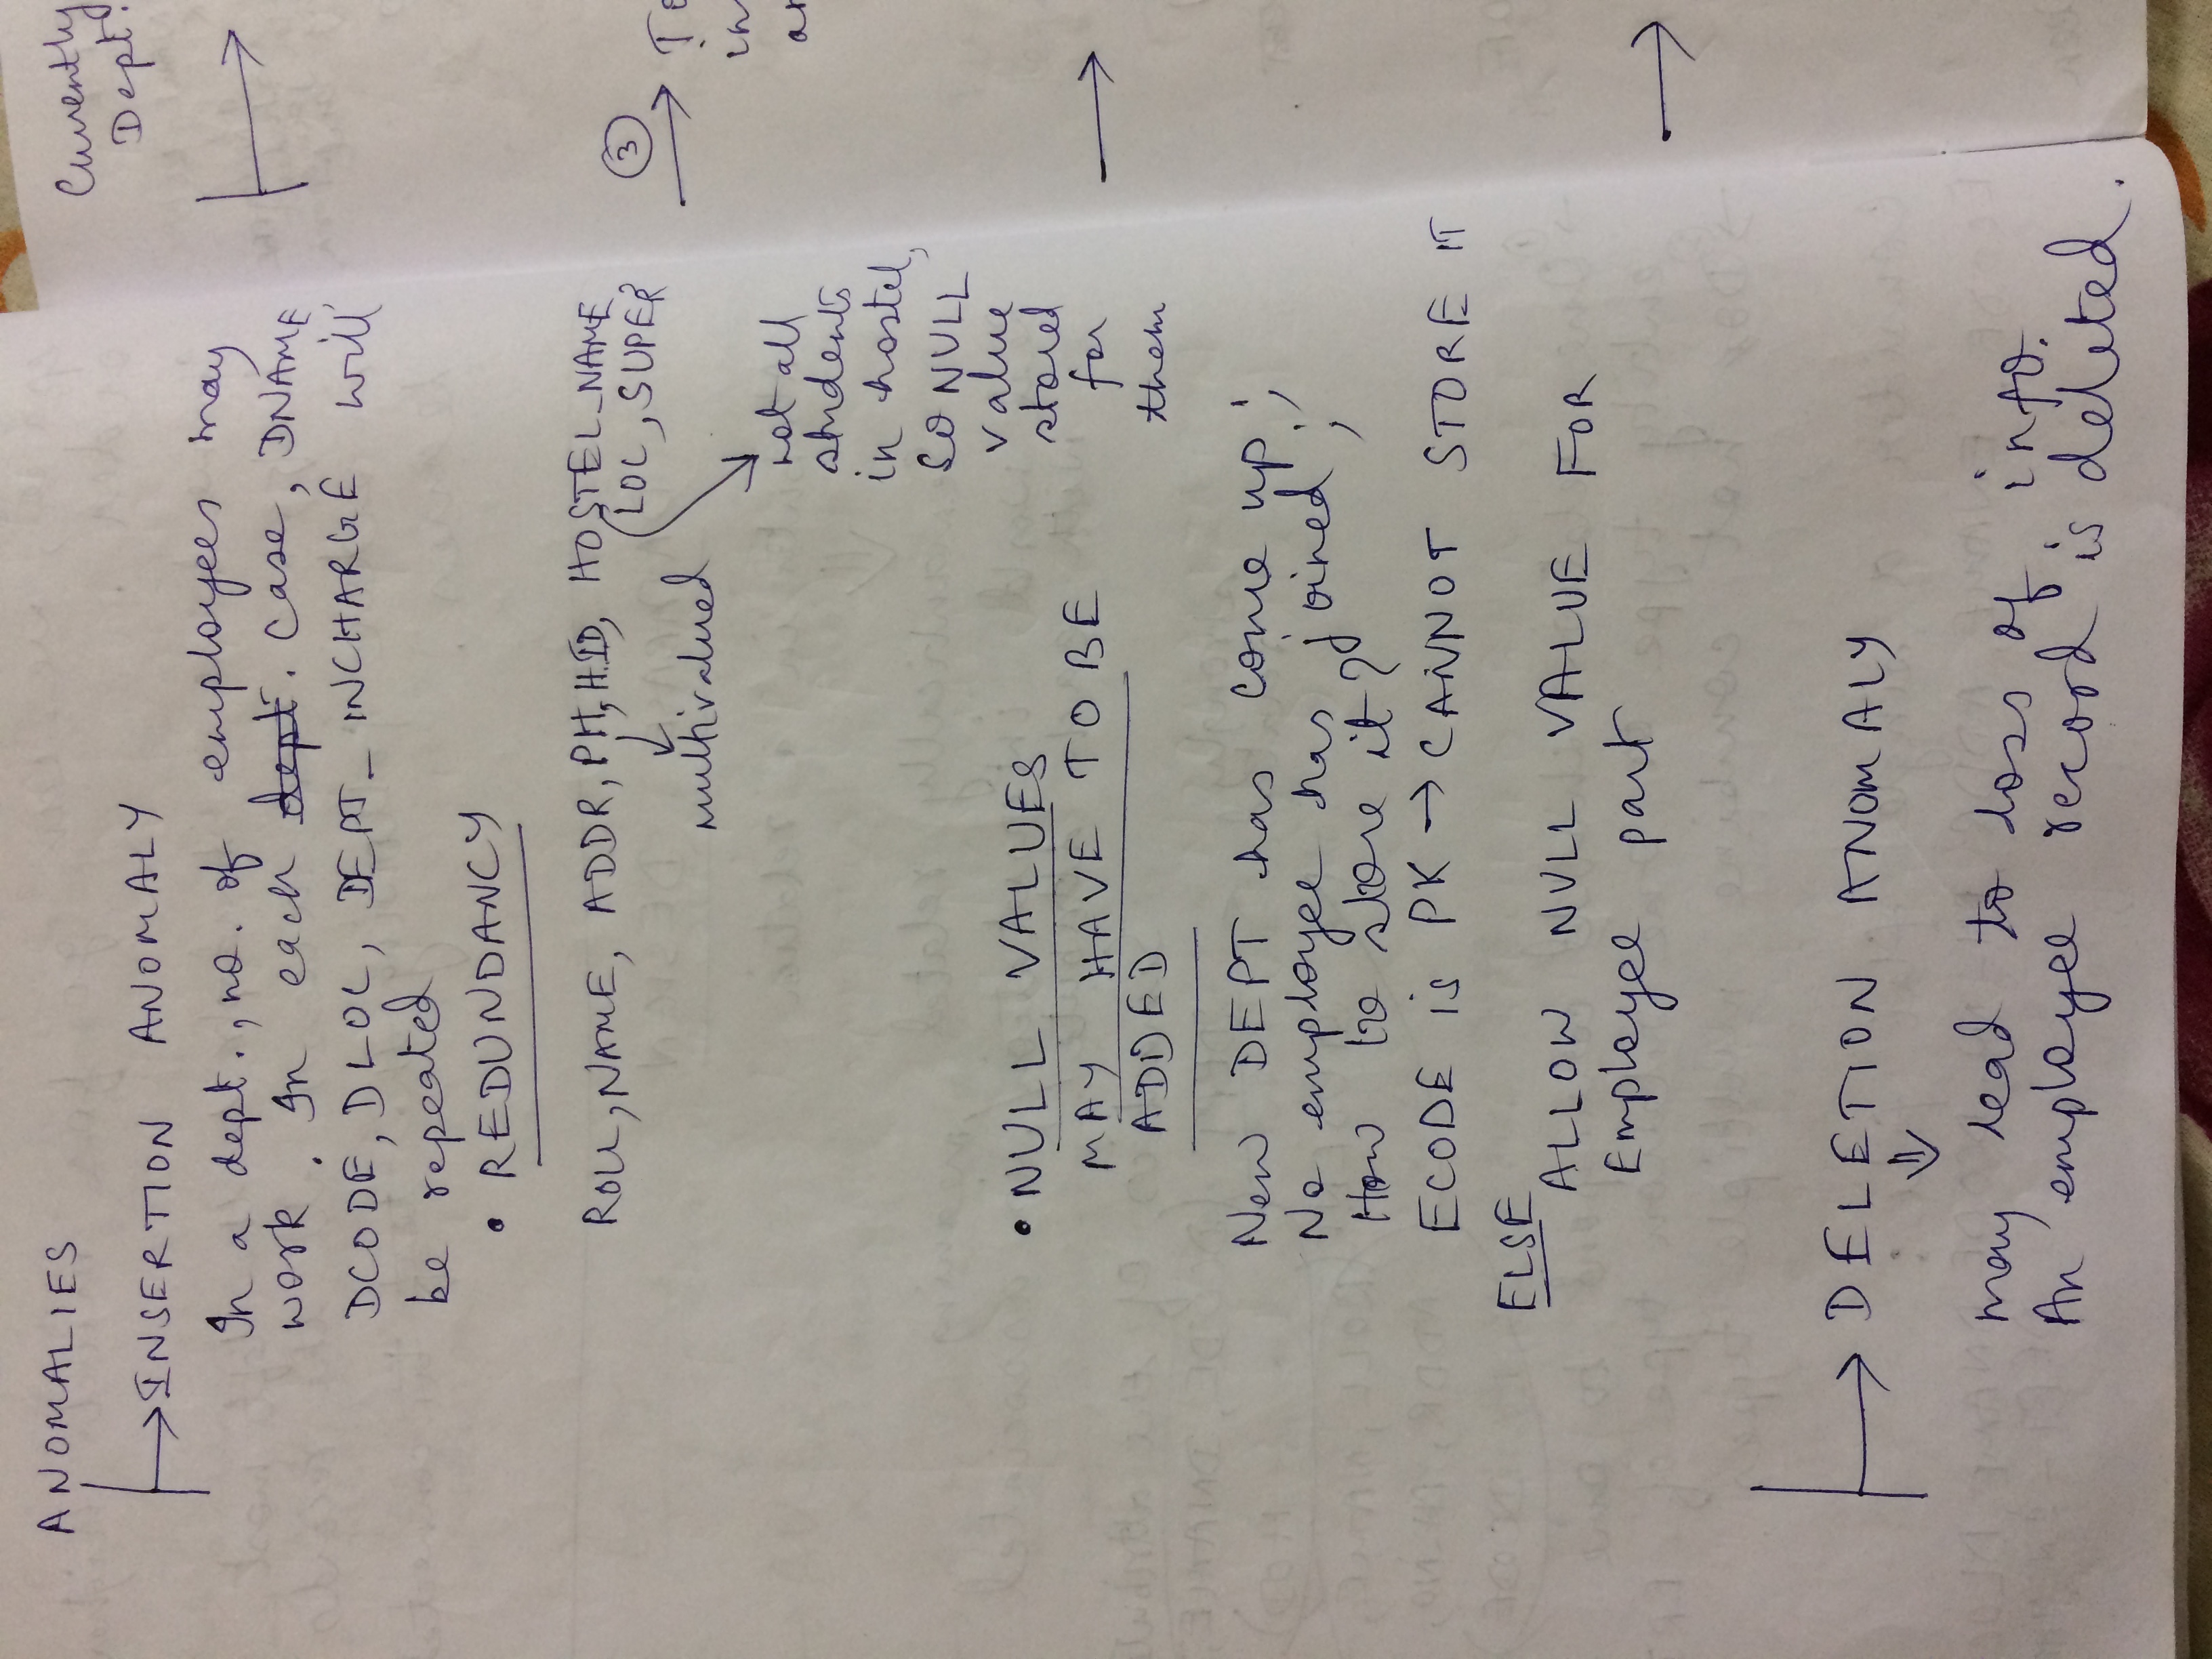 ANOMALIES
→ INSERTION ANOMALY
In a dept., no. of employees may
work. In each dept. case, DNAME,
DCODE, DLOC, DEPT_INCHARGE will
be repeated
• REDUNDANCY
ROLL, NAME, ADDR, PH, H.ID, HOSTEL_NAME
LOC, SUPER
multivalued
not all
students
in hostel,
SO NULL
value
stored
for
them
• NULL VALUES
MAY HAVE TO BE
ADDED
New DEPT has come up;
No employee has joined;
How to store it?
ECODE is PK → CANNOT STORE IT
ELSE
ALLOW NULL VALUE FOR
Employee part
→ DELETION ANOMALY
⇓
may lead to loss of info.
An employee record is deleted.
Currently
Dept.
→
③
→
in
→
→